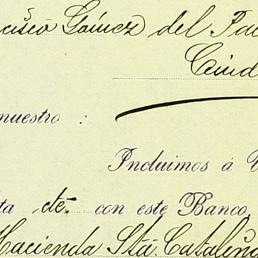 cisco Gómez del Pa
Ciud
nuestro :
Incluimos á V
ta de con este Banco
Hacienda Sta. Catalina